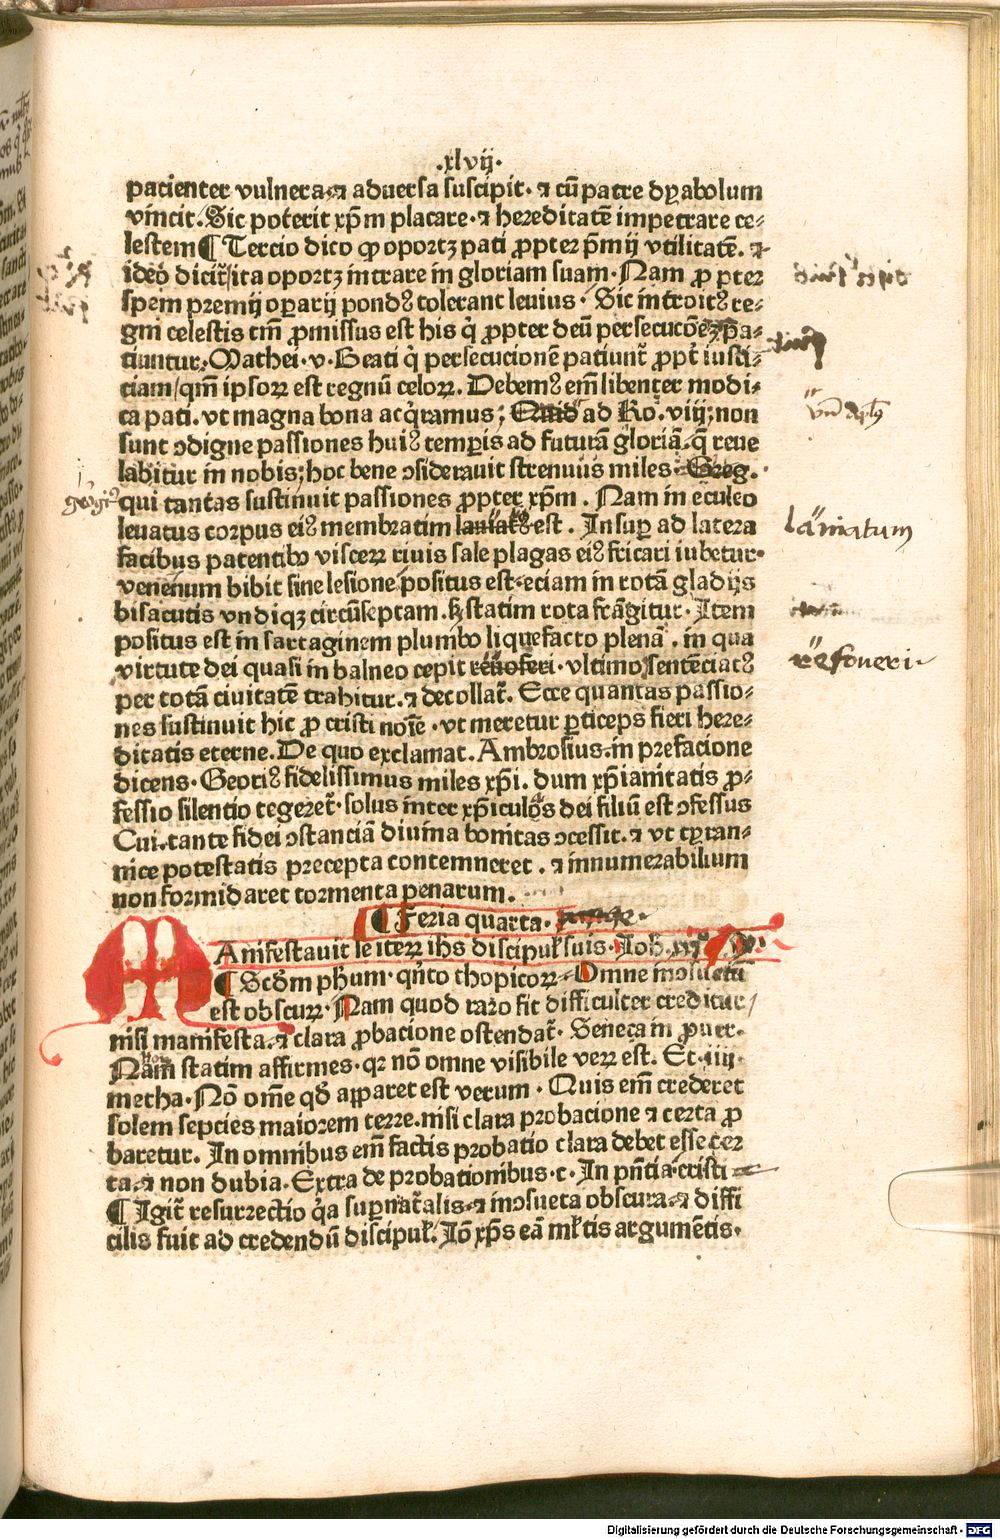 .xlvij.
pacienter vulnera ⁊ aduersa suscipit· ⁊ cū patre dyabolum
vincit. Sic poterit xp̄m placare· ⁊ hereditatē impetrare ce⸗
lestem ¶ Tercio dico ꝙ oportꝫ pati ꝓpter p̄mij vtilitatē. ⁊
ideo dicit᷑/ita oportꝫ intrare in gloriam suam· Nam ꝓpter
spem premij oꝑarij pondꝰ tolerant leuius· Sic introitꝰ re⸗
gni celestis tm̄ ꝓmissus est his q̇ ꝓpter deū persecucōeꝫ pa⸗
tiuntur· Mathei·v· Beati q̇ persecucionē patiunt᷑ ꝓpt̉ iusti⸗
ciam/qm̄ ipsoꝝ est regnū celoꝝ. Debemꝰ em̄ libenter modi⸗
ca pati. vt magna bona acq̇ramus; ad Ro. viij; non
sunt ↄdigne passiones huiꝰ temꝑis ad futurā gloriā. q̄ reue
labitur in nobis; hoc bene ↄsiderauit strenuus miles Greg.
qui tantas sustinuit passiones ꝓpter xp̄m. Nam in eculeo
leuatus corpus eiꝰ membratim est. Insuꝑ ad latera
facibus patentibꝰ visceꝝ riuis sale plagas eiꝰ fricari iubetur·
venenum bibit sine lesione positus est eciam in rotā gladijs
bisacutis vndiqꝫ circūseptam. sꝫ statim rota frāgitur· Item
positus est in sartaginem plumbo liquefacto plenā. in qua
virtute dei quasi in balneo cepit reuoferi· vltimo sentenciatꝰ
per totā ciuitatē trahitur. ⁊ decollat᷑. Ecce quantas passio⸗
nes sustinuit hic ꝓ cristi noīe· vt meretur ꝑticeps fieri here⸗
ditatis eterne. De quo exclamat. Ambrosius in prefacione
dicens· Georiꝰ fidelissimus miles xp̄i. dum xp̄ianitatis ꝓ⸗
fessio silentio tegeret᷑· solus inter xp̄iculos dei filiū est ↄfessus
Cui. tante fidei ↄstanciā diuina bonitas ↄcessit. ⁊ vt tyran⸗
nice potestatis precepta contemneret. ⁊ innumerabilium
non formidaret tormenta penarum.
¶ Feria quarta.
MAnifestauit se iteꝝ ihs discipuł suis· Joh̄.
¶ Scd̄m ph̄um· qn̄to thopicoꝝ· Omne inↄsuetū
est obscuꝝ· Nam quod raro fit difficulter creditur/
nisi manifesta. ⁊ clara ꝓbacione ostendat᷑· Seneca in ꝓuer·
Nam statim affirmes· qꝛ nō omne visibile veꝝ est. Et·iiij·
metha· Nō om̄e qd̄ apparet est verum· Quis em̄ crederet
solem sepcies maiorem terre. nisi clara probacione ⁊ certa ꝓ
baretur. In omnibus em̄ factis probatio clara debet esse cer
ta. ⁊ non dubia. Extra de probationibus·c· In pn̄tia cristi
¶ Igit᷑ resurrectio q̇a suꝑnat᷑alis ⁊ inↄsueta obscura ⁊ diffi
cilis fuit ad credendū discipuł. Iō xp̄s eā młtis argumētis·
georgiꝰ
laniatum
refoueri
Digitalisierung gefördert durch die Deutsche Forschungsgemeinschaft - DFG